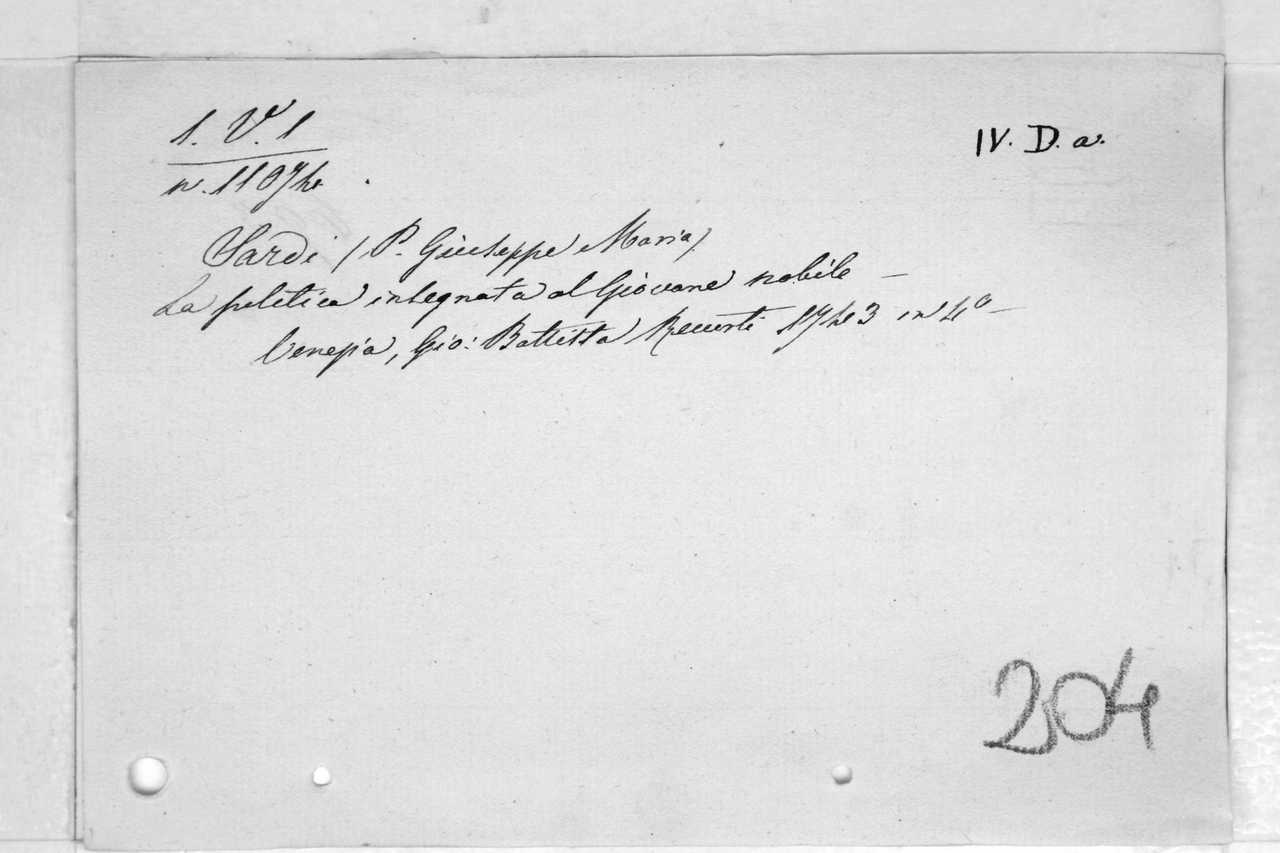 1. V. 1
IV. D. a.
n. 11074
Sardi (P. Giuseppe Maria)
La politica insegnata al Giovane nobile —
Venezia, Gio: Battista Recurti 1743 in 4º —
204